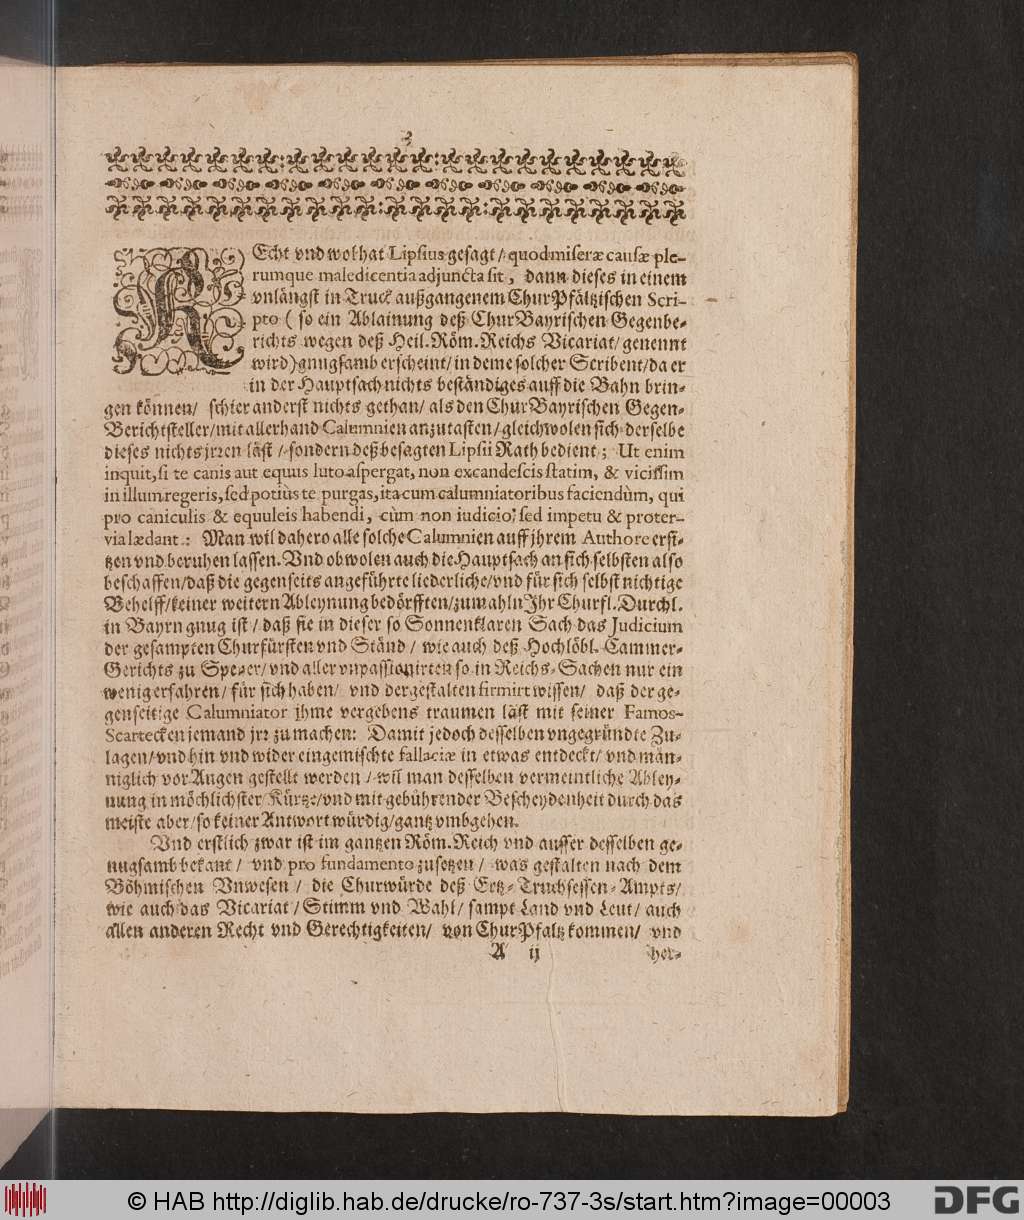 3
REcht vnd wol hat Lipsius gesagt / quod miseræ causæ ple-
rumque maledicentia adjuncta sit, dann dieses in einem
vnlängst in Truck außgangenem ChurPfältzischen Scri-
pto ( so ein Ablainung deß ChurBayrischen Gegenbe-
richts wegen deß Heil. Röm. Reichs Vicariat / genennt
wird) gnugsamb erscheint / in deme solcher Scribent / da er
in der Hauptsach nichts beständiges auff die Bahn brin-
gen können / schier anderst nichts gethan / als den ChurBayrischen Gegen-
Berichtsteller / mit allerhand Calumnien anzutasten / gleichwolen sich derselbe
dieses nichts jrren läst / sondern deß besagten Lipsii Rath bedient ; Ut enim
inquit, si te canis aut equus luto aspergat, non excandescis statim, & vicissim
in illum regeris, sed potiùs te purgas, ita cum calumniatoribus faciendùm, qui
pro caniculis & equuleis habendi, cùm non iudicio, sed impetu & proter-
via lædant : Man wil dahero alle solche Calumnien auff jhrem Authore ersi-
tzen vnd beruhen lassen. Vnd obwolen auch die Hauptsach an sich selbsten also
beschaffen / daß die gegenseits angeführte liederliche / vnd für sich selbst nichtige
Behelff / keiner weitern Ableynung bedörfften / zumahln Ihr Churfl. Durchl.
in Bayrn gnug ist / daß sie in dieser so Sonnenklaren Sach das Judicium
der gesampten Churfürsten vnd Ständ / wie auch deß Hochlöbl. Cammer-
Gerichts zu Speyer / vnd aller vnpassionirten so in Reichs-Sachen nur ein
wenig erfahren / für sich haben / vnd dergestalten firmirt wissen / daß der ge-
genseitige Calumniator jhme vergebens traumen läst mit seiner Famos-
Scartecken jemand jrr zu machen: Damit jedoch desselben vngegründte Zu-
lagen / vnd hin vnd wider eingemischte fallaciæ in etwas entdeckt / vnd män-
niglich vor Augen gestellt werden / wil man desselben vermeintliche Abley-
nung in möchlichster Kürtze / vnd mit gebührender Bescheydenheit durch das
meiste aber / so keiner Antwort würdig / gantz vmbgehen.
Vnd erstlich zwar ist im gantzen Röm. Reich vnd ausser desselben ge-
nugsamb bekant / vnd pro fundamento zusetzen / was gestalten nach dem
Böhmischen Vnwesen / die Churwürde deß Ertz-Truchsessen-Ampts /
wie auch das Vicariat / Stimm vnd Wahl / sampt Land vnd Leut / auch
allen anderen Recht vnd Gerechtigkeiten / von ChurPfaltz kommen / vnd
A ij her-
© HAB http://diglib.hab.de/drucke/ro-737-3s/start.htm?image=00003
DFG